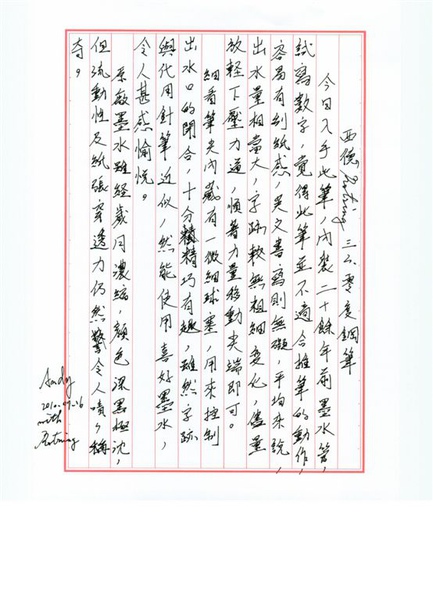 西德Rotring 三六零度鋼筆
今日入手此筆，內裝二十餘年前墨水管，
試寫數字，覺得此筆並不適合推筆的動作，
容易有刮紙感，英文書寫則無礙，平均來說，
出水量相當大，字跡較無粗細變化，儘量
放輕下壓力道，順著力量移動尖端即可。
細看筆尖內藏有一微細球墨，用來控制
出水口的開合，十分精巧有趣，雖然字跡
與代用針筆近似，然能使用喜好墨水，
令人甚感愉悅。
原廠墨水雖經歲月濃縮，顏色深黑極沈，
但流動性及紙張穿透力仍然驚令人嘖嘖稱
奇。
Andy
2010.07.26
with
Rotring